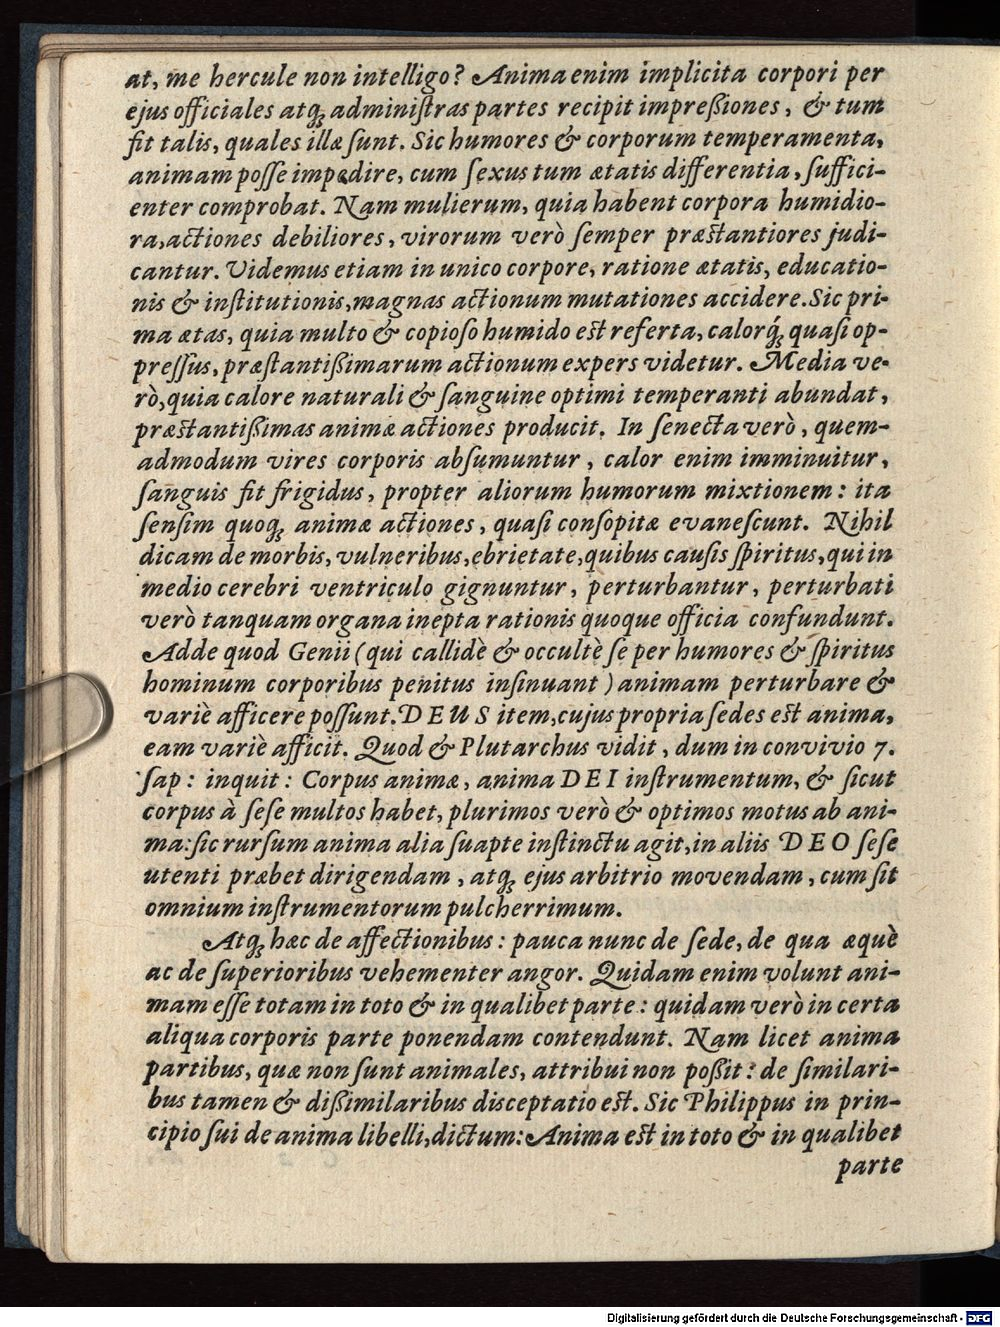 at, me hercule non intelligo? Anima enim implicita corpori per
ejus officiales atq́ꝫ adminiſtras partes recipit impreßiones, & tum
fit talis, quales illæ ſunt. Sic humores & corporum temperamenta,
animam poſſe impedire, cum ſexus tum ætatis differentia, ſuffici-
enter comprobat. Nam mulierum, quia habent corpora humidio-
ra, actiones debiliores, virorum verò ſemper præstantiores judi-
cantur. Videmus etiam in unico corpore, ratione ætatis, educatio-
nis & inſtitutionis, magnas actionum mutationes accidere. Sic pri-
ma ætas, quia multo & copioſo humido est referta, calorq́ꝫ quaſi op-
preſſus, præſtantißimarum actionum expers videtur. Media ve-
rò, quia calore naturali & ſanguine optimi temperanti abundat,
præstantißimas animæ actiones producit. In ſenecta verò, quem-
admodum vires corporis abſumuntur, calor enim imminuitur,
ſanguis fit frigidus, propter aliorum humorum mixtionem: ita
ſenſim quoqꝫ animæ actiones, quaſi conſopitæ evaneſcunt. Nihil
dicam de morbis, vulneribus, ebrietate, quibus cauſis ſpiritus, qui in
medio cerebri ventriculo gignuntur, perturbantur, perturbati
verò tanquam organa inepta rationis quoque officia confundunt.
Adde quod Genii (qui callidè & occultè ſe per humores & ſpiritus
hominum corporibus penitus inſinuant) animam perturbare &
variè afficere poſſunt. DEUS item, cujus propria ſedes est anima,
eam variè afficit. Quod & Plutarchus vidit, dum in convivio 7.
ſap: inquit: Corpus animæ, anima DEI inſtrumentum, & ſicut
corpus à ſeſe multos habet, plurimos verò & optimos motus ab ani-
ma: ſic rurſum anima alia ſuapte inſtinctu agit, in aliis DEO ſeſe
utenti præbet dirigendam, atqꝫ ejus arbitrio movendam, cum ſit
omnium inſtrumentorum pulcherrimum.
Atqꝫ hæc de affectionibus: pauca nunc de ſede, de qua æquè
ac de ſuperioribus vehementer angor. Quidam enim volunt ani-
mam eſſe totam in toto & in qualibet parte: quidam verò in certa
aliqua corporis parte ponendam contendunt. Nam licet anima
partibus, quæ non ſunt animales, attribui non poßit: de ſimilari-
bus tamen & dißimilaribus disceptatio est. Sic Philippus in prin-
cipio ſui de anima libelli, dictum: Anima est in toto & in qualibet
parte
Digitalisierung gefördert durch die Deutsche Forschungsgemeinschaft - DFG